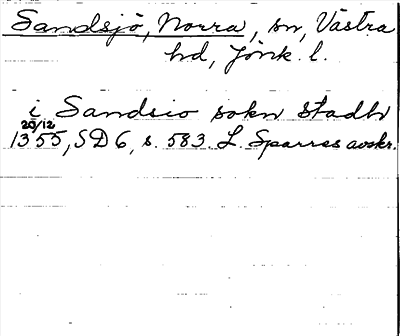 Sandsjö, Norra, sn, Västra
hd, Jönk. l.
i Sandsio sokn Stadh
20/12
1355, SD 6, s. 583. L. Sparres avskr.